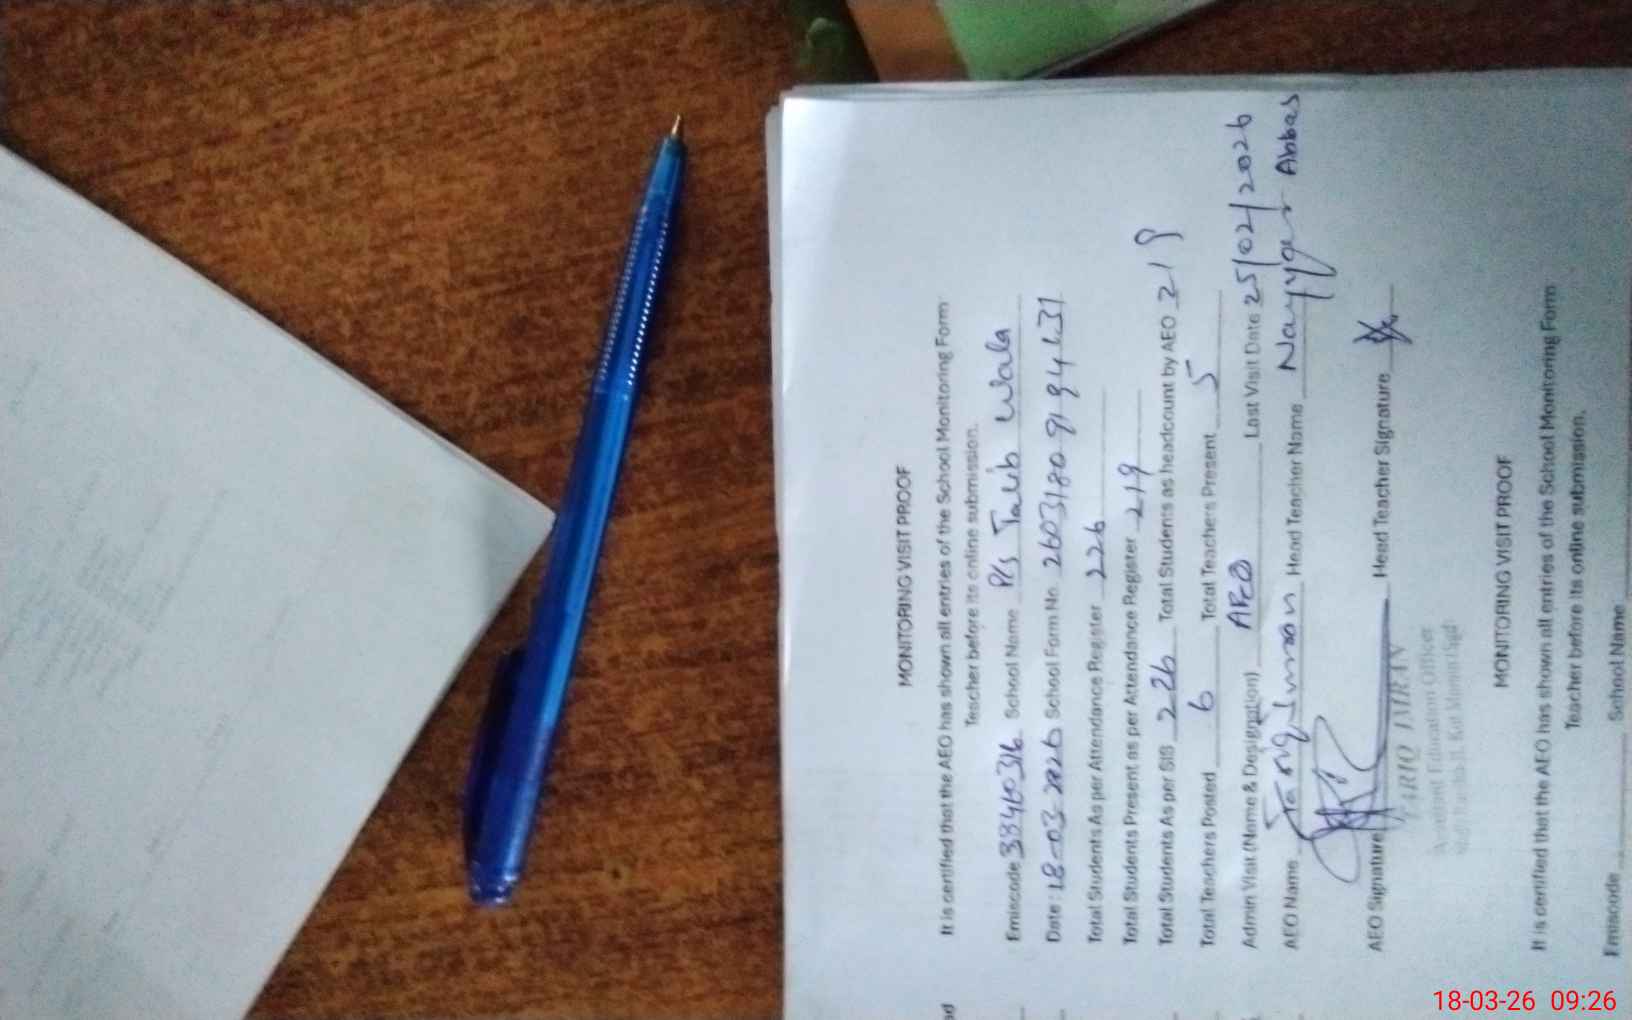 MONITORING VISIT PROOF
It is certified that the AEO has shown all entries of the School Monitoring Form
Teacher before its online submission.
Emiscode 38460316 School Name P/S Talib Wala
Date: 18-03-2026 School Form No. 26031809194431
Total Students As per Attendance Register 226
Total Students Present as per Attendance Register 219
Total Students As per SIS 226 Total Students as headcount by AEO 219
Total Teachers Posted 6 Total Teachers Present 5
Admin Visit (Name & Designation) AEO Last Visit Date 25/02/2026
AEO Name Tariq Imran Head Teacher Name Nayyer Abbas
AEO Signature Head Teacher Signature
TARIQ IMRAN
Assistant Education Officer
MONITORING VISIT PROOF
It is certified that the AEO has shown all entries of the School Monitoring Form
Teacher before its online submission.
Emiscode School Name
18-03-26 09:26